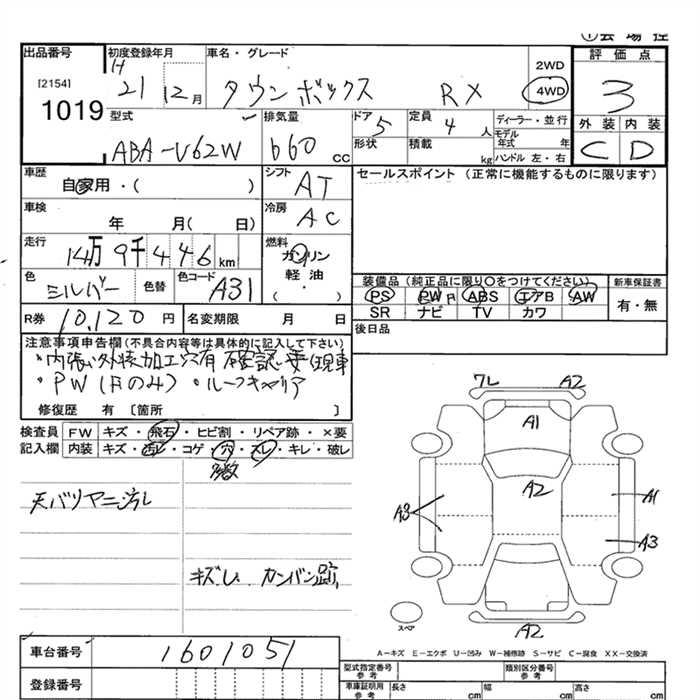 ①会場控
出品番号 初度登録年月 車名・グレード 評価点
[2154]
1019
H 21 12月 タウンボックス RX 2WD 4WD 3
型式 排気量 ドア 定員 ディーラー・並行 外装 内装
ABA-U62W 660 cc 5 4 人 モデル年式 年 C D
形状 積載 kg ハンドル 左・右
車歴 自家用・( ) シフト AT セールスポイント (正常に機能するものに限ります)
車検 年 月( 日) 冷房 AC
走行 14万 9千 4 4 6 km 燃料 ガソリン 軽油 ( ・ )
色 シルバー 色替 色コード A31
装備品(純正品に限り○をつけてください) 新車保証書
PS PW ABS エアB AW 有・無
SR ナビ TV カワ
R券 10,120 円 名変期限 月 日 後日品
注意事項申告欄(不具合内容等は具体的に記入して下さい)
・PW(Fのみ) ・ルーフキャリア
修復歴 有 〔箇所 〕
検査員 FW キズ・飛石・ヒビ割・リペア跡・×要
記入欄 内装 キズ・汚レ・コゲ・穴・スレ・キレ・破レ
多数
天バリヤニ汚レ
キズし カンバン跡
フレ A2
A1
A2
A3 A1
A3
スペア A2
A－キズ E－エクボ U－凹み W－補修跡 S－サビ C－腐食 XX－交換済
車台番号 1601051
登録番号
型式指定番号 参考 類別区分番号 参考
車庫証明用 参考 長さ cm 幅 cm 高さ cm